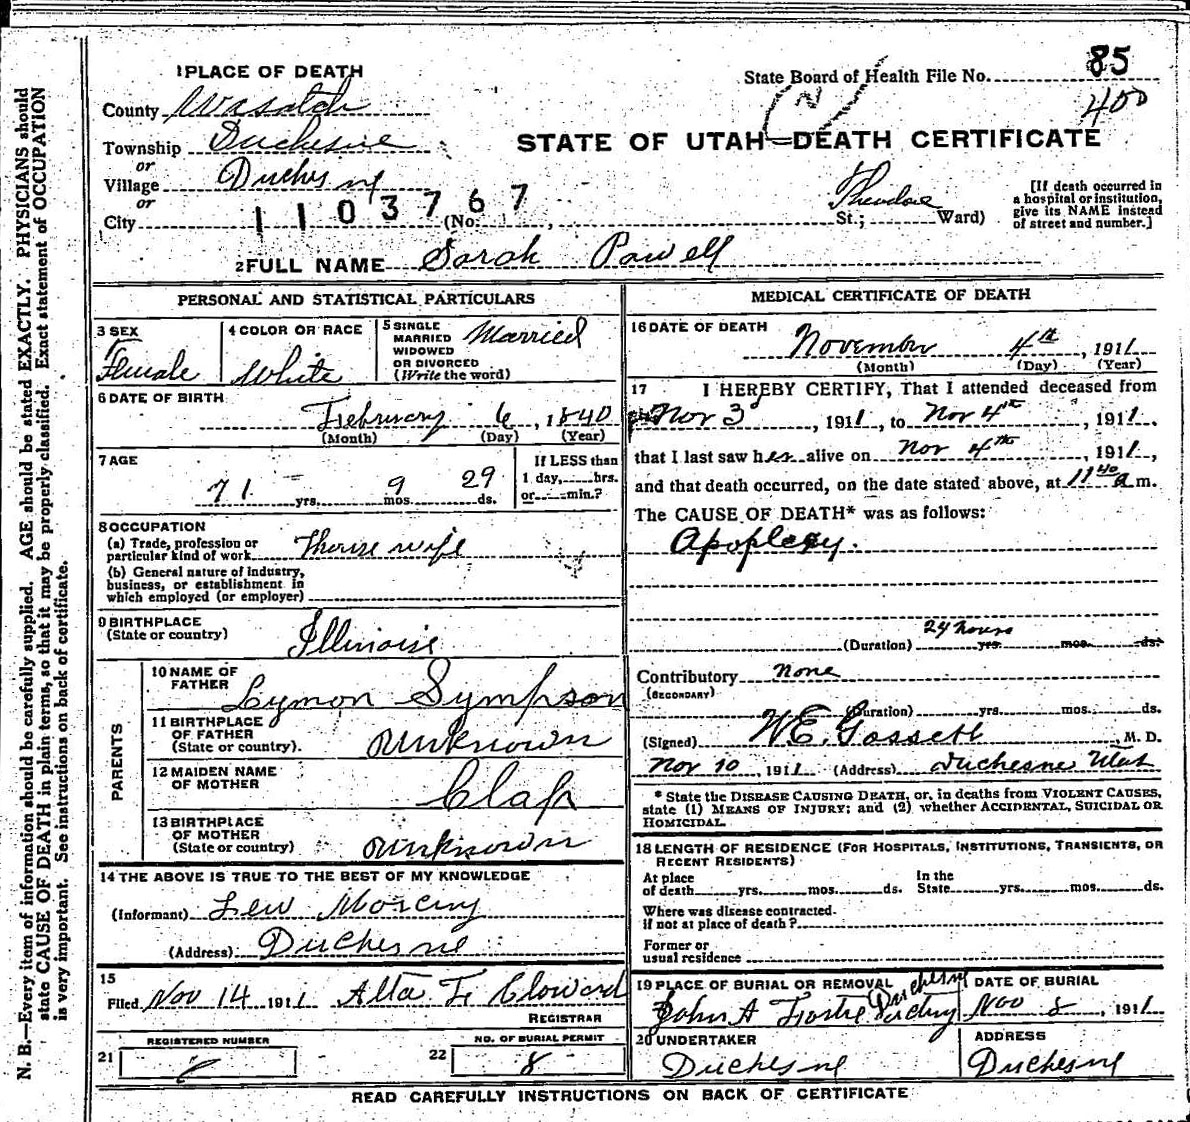 1 PLACE OF DEATH
State Board of Health File No. 85
400
County Wasatch
(N)
STATE OF UTAH—DEATH CERTIFICATE
Township Duchesne
or
Village Duchesne
or
City 1103767 (No. , Theodore St.; Ward)
[If death occurred in a hospital or institution, give its NAME instead of street and number.]
2 FULL NAME Sarah Powell
PERSONAL AND STATISTICAL PARTICULARS
3 SEX Female
4 COLOR OR RACE White
5 SINGLE MARRIED WIDOWED OR DIVORCED (Write the word) Married
6 DATE OF BIRTH
February 6, 1840
(Month) (Day) (Year)
7 AGE
71 yrs. 9 mos. 29 ds.
If LESS than 1 day, hrs. or min.?
8 OCCUPATION
(a) Trade, profession or particular kind of work House wife
(b) General nature of industry, business, or establishment in which employed (or employer)
9 BIRTHPLACE (State or country) Illinois
PARENTS
10 NAME OF FATHER Lymon Sympson
11 BIRTHPLACE OF FATHER (State or country) Unknown
12 MAIDEN NAME OF MOTHER Clap
13 BIRTHPLACE OF MOTHER (State or country) Unknown
14 THE ABOVE IS TRUE TO THE BEST OF MY KNOWLEDGE
(Informant) Lew
(Address) Duchesne
15
Filed Nov 14 1911 Alta F. Cloward
REGISTRAR
REGISTERED NUMBER
21
NO. OF BURIAL PERMIT
22 8
MEDICAL CERTIFICATE OF DEATH
16 DATE OF DEATH
November 4th, 1911
(Month) (Day) (Year)
17 I HEREBY CERTIFY, That I attended deceased from
Nov 3, 1911, to Nov 4th, 1911.
that I last saw her alive on Nov 4th, 1911,
and that death occurred, on the date stated above, at 11 40 a m.
The CAUSE OF DEATH* was as follows:
Apoplexy.
(Duration) 24 hours yrs. mos. ds.
Contributory None
(SECONDARY)
(Duration) yrs. mos. ds.
(Signed) W.E. Gossett, M. D.
Nov 10 1911 (Address) Duchesne Utah
* State the DISEASE CAUSING DEATH, or, in deaths from VIOLENT CAUSES,
state (1) MEANS OF INJURY; and (2) whether ACCIDENTAL, SUICIDAL OR
HOMICIDAL.
18 LENGTH OF RESIDENCE (FOR HOSPITALS, INSTITUTIONS, TRANSIENTS, OR
RECENT RESIDENTS)
At place of death yrs. mos. ds. In the State yrs. mos. ds.
Where was disease contracted.
If not at place of death?
Former or
usual residence
19 PLACE OF BURIAL OR REMOVAL Duchesne
DATE OF BURIAL
John A Nov 8, 1911
20 UNDERTAKER
Duchesne
ADDRESS
Duchesne
READ CAREFULLY INSTRUCTIONS ON BACK OF CERTIFICATE
N. B.—Every item of information should be carefully supplied. AGE should be stated EXACTLY. PHYSICIANS should
state CAUSE OF DEATH in plain terms, so that it may be properly classified. Exact statement of OCCUPATION
is very important. See instructions on back of certificate.